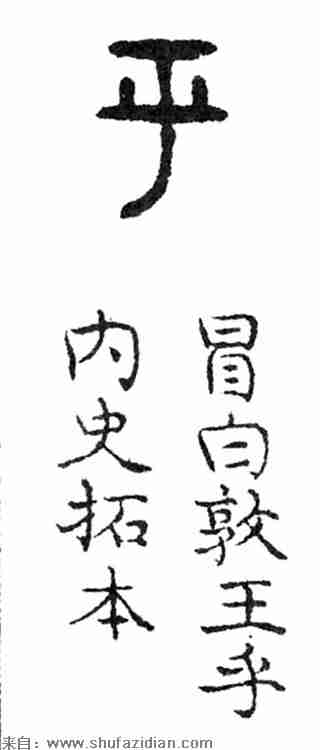 乎
冒白敦王乎
内史拓本
来自：www.shufazidian.com